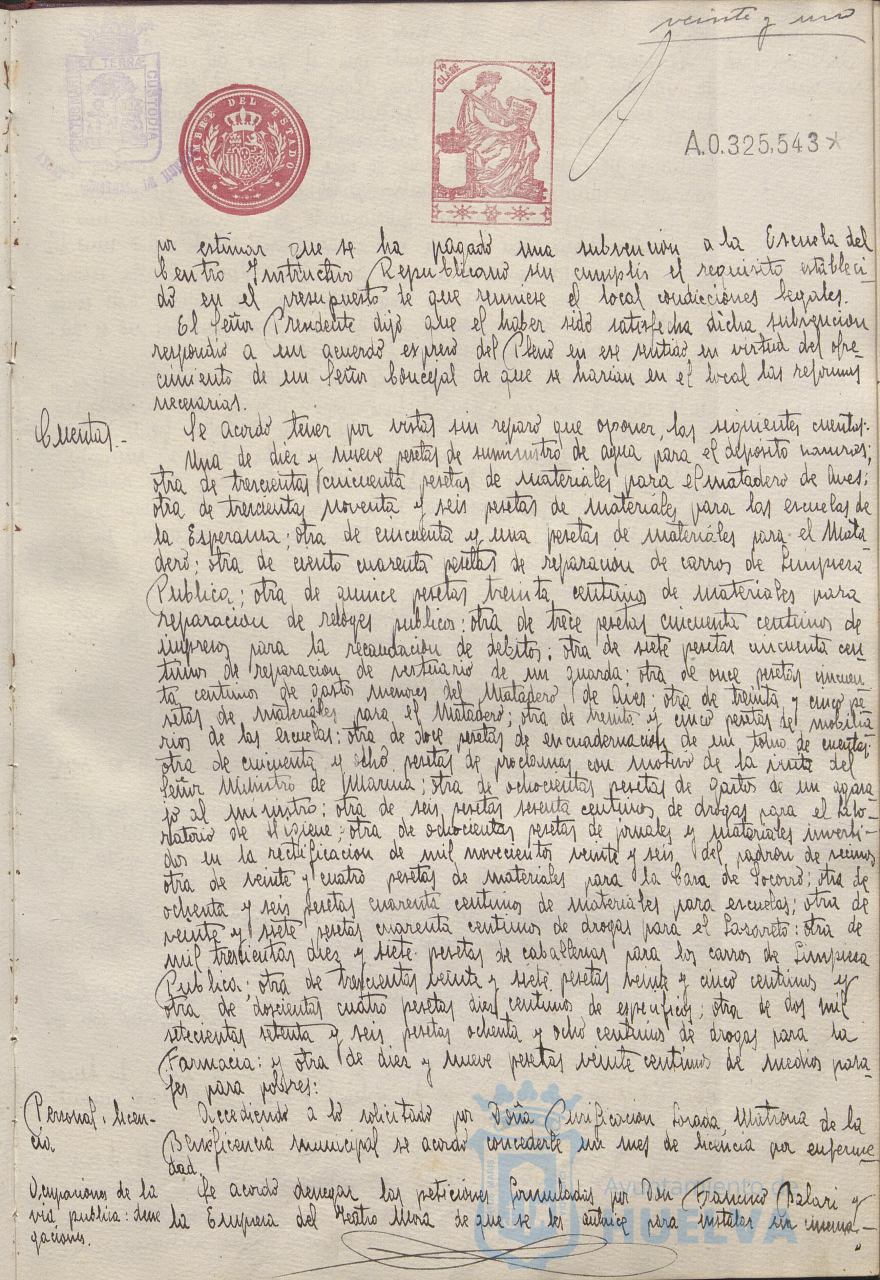 veinte y uno
TIMBRE DEL ESTADO
7ª CLASE
PESETAS
A.0.325,543
por estimar que se ha pagado una subvención a la Escuela del
Centro Instructivo Republicano sin cumplir el requisito estableci-
do en el presupuesto de que reuniese el local condicciones legales.
El Señor Presidente dijo que el haber sido satisfecha dicha subvencion
respondió a un acuerdo expreso del Pleno en ese sentido en virtud del ofre-
cimiento de un Señor Concejal de que se harian en el local las reformas
necesarias.
Cuentas.-
Se acordó tener por vistas sin reparo que oponer, las siguientes cuentas:
Una de diez y nueve pesetas de suministro de agua para el depósito
otra de trescientas cincuenta pesetas de materiales para el matadero de Aves;
otra de trescientas noventa y seis pesetas de materiales para las escuelas de
la Esperanza; otra de cincuenta y una pesetas de materiales para el Mata
dero; otra de ciento cuarenta pesetas de reparación de carros de Limpieza
Publica; otra de quince pesetas treinta centimos de materiales para
reparación de relojes publicos: otra de trece pesetas cincuenta centimos de
impresos para la recaudacion de debitos; otra de siete pesetas cincuenta cen
timos de reparacion de vestuario de un guarda: otra de once pesetas cincuen
ta centimos de gastos menores del Matadero de Aves: otra de treinta y cinco pe
setas de materiales para el Matadero; otra de treinta y cinco pesetas del mobilia
rios de las escuelas: otra de doce pesetas de encuadernacion de un tomo de cuentas:
otra de cincuenta y ocho pesetas de proclamas con motivo de la visita del
Señor Ministro de Marina; otra de ochocientas pesetas de gastos de un agasa
jo al ministro: otra de seis pesetas sesenta centimos de drogas para el Labo-
ratorio de Higiene; otra de ochocientas pesetas de jornales y materiales inverti-
dos en la rectificacion de mil novecientos veinte y seis del padron de vecinos
otra de veinte y cuatro pesetas de materiales para la Casa de Socorro; otra de
ochenta y seis pesetas cuarenta centimos de materiales para escuelas; otra de
veinte y siete pesetas cuarenta centimos de drogas para el Lazareto: otra de
mil trescientas diez y siete pesetas de caballerias para los carros de Limpieza
Publica; otra de trescientas veinte y siete pesetas veinte y cinco centimos y
otra de doscientas cuatro pesetas diez centimos de especificos; otra de dos mil
setecientas setenta y seis pesetas ochenta y ocho centimos de drogas para la
Farmacia: y otra de diez y nueve pesetas veinte centimos de medios para-
jes para pobres:
Personal: licen-
cia.
Accediendo a lo solicitado por Doña Purificacion Matrona de la
Beneficencia municipal se acordó concederle un mes de licencia por enferme
dad.
Ocupaciones de la
via publica: dene
gaciones.
Se acordó denegar las peticiones formuladas por Don Francisco y
la Empresa del Teatro Mora de que se les autorice para instalar un cinema-
Ayuntamiento de
HUELVA